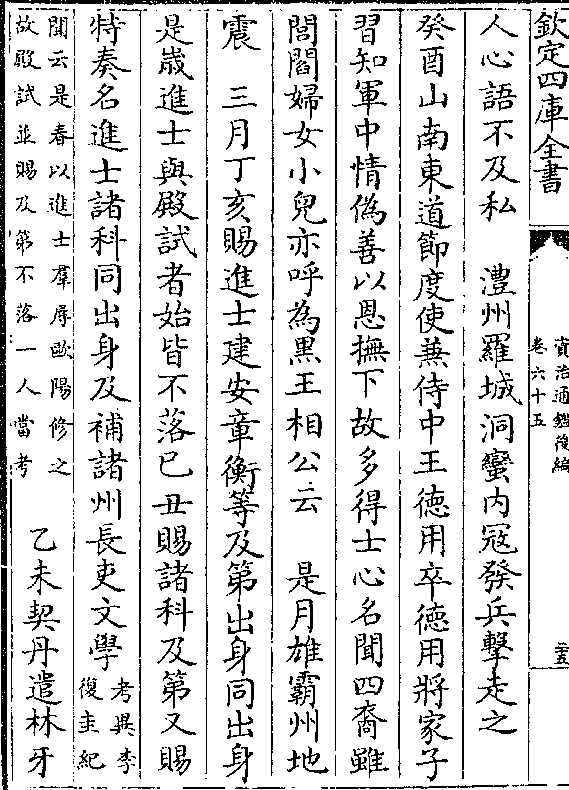 欽定四庫全書
資治通鑑後編
卷六十五
二十五
人心語不及私　澧州羅城洞蠻内冦發兵擊走之
癸酉山南東道節度使蒹侍中王徳用卒徳用將家子
習知軍中情偽善以恩撫下故多得士心名聞四裔雖
閭閻婦女小兒亦呼為黒王相公云　是月雄霸州地
震　三月丁亥賜進士建安章衡等及第出身同出身
是嵗進士與殿試者始皆不落已丑賜諸科及第又賜
特奏名進士諸科同出身及補諸州長吏文學考異李
復圭紀
聞云是春以進士羣辱歐陽修之
故殿試並賜及第不落一人當考
乙未契丹遣林牙